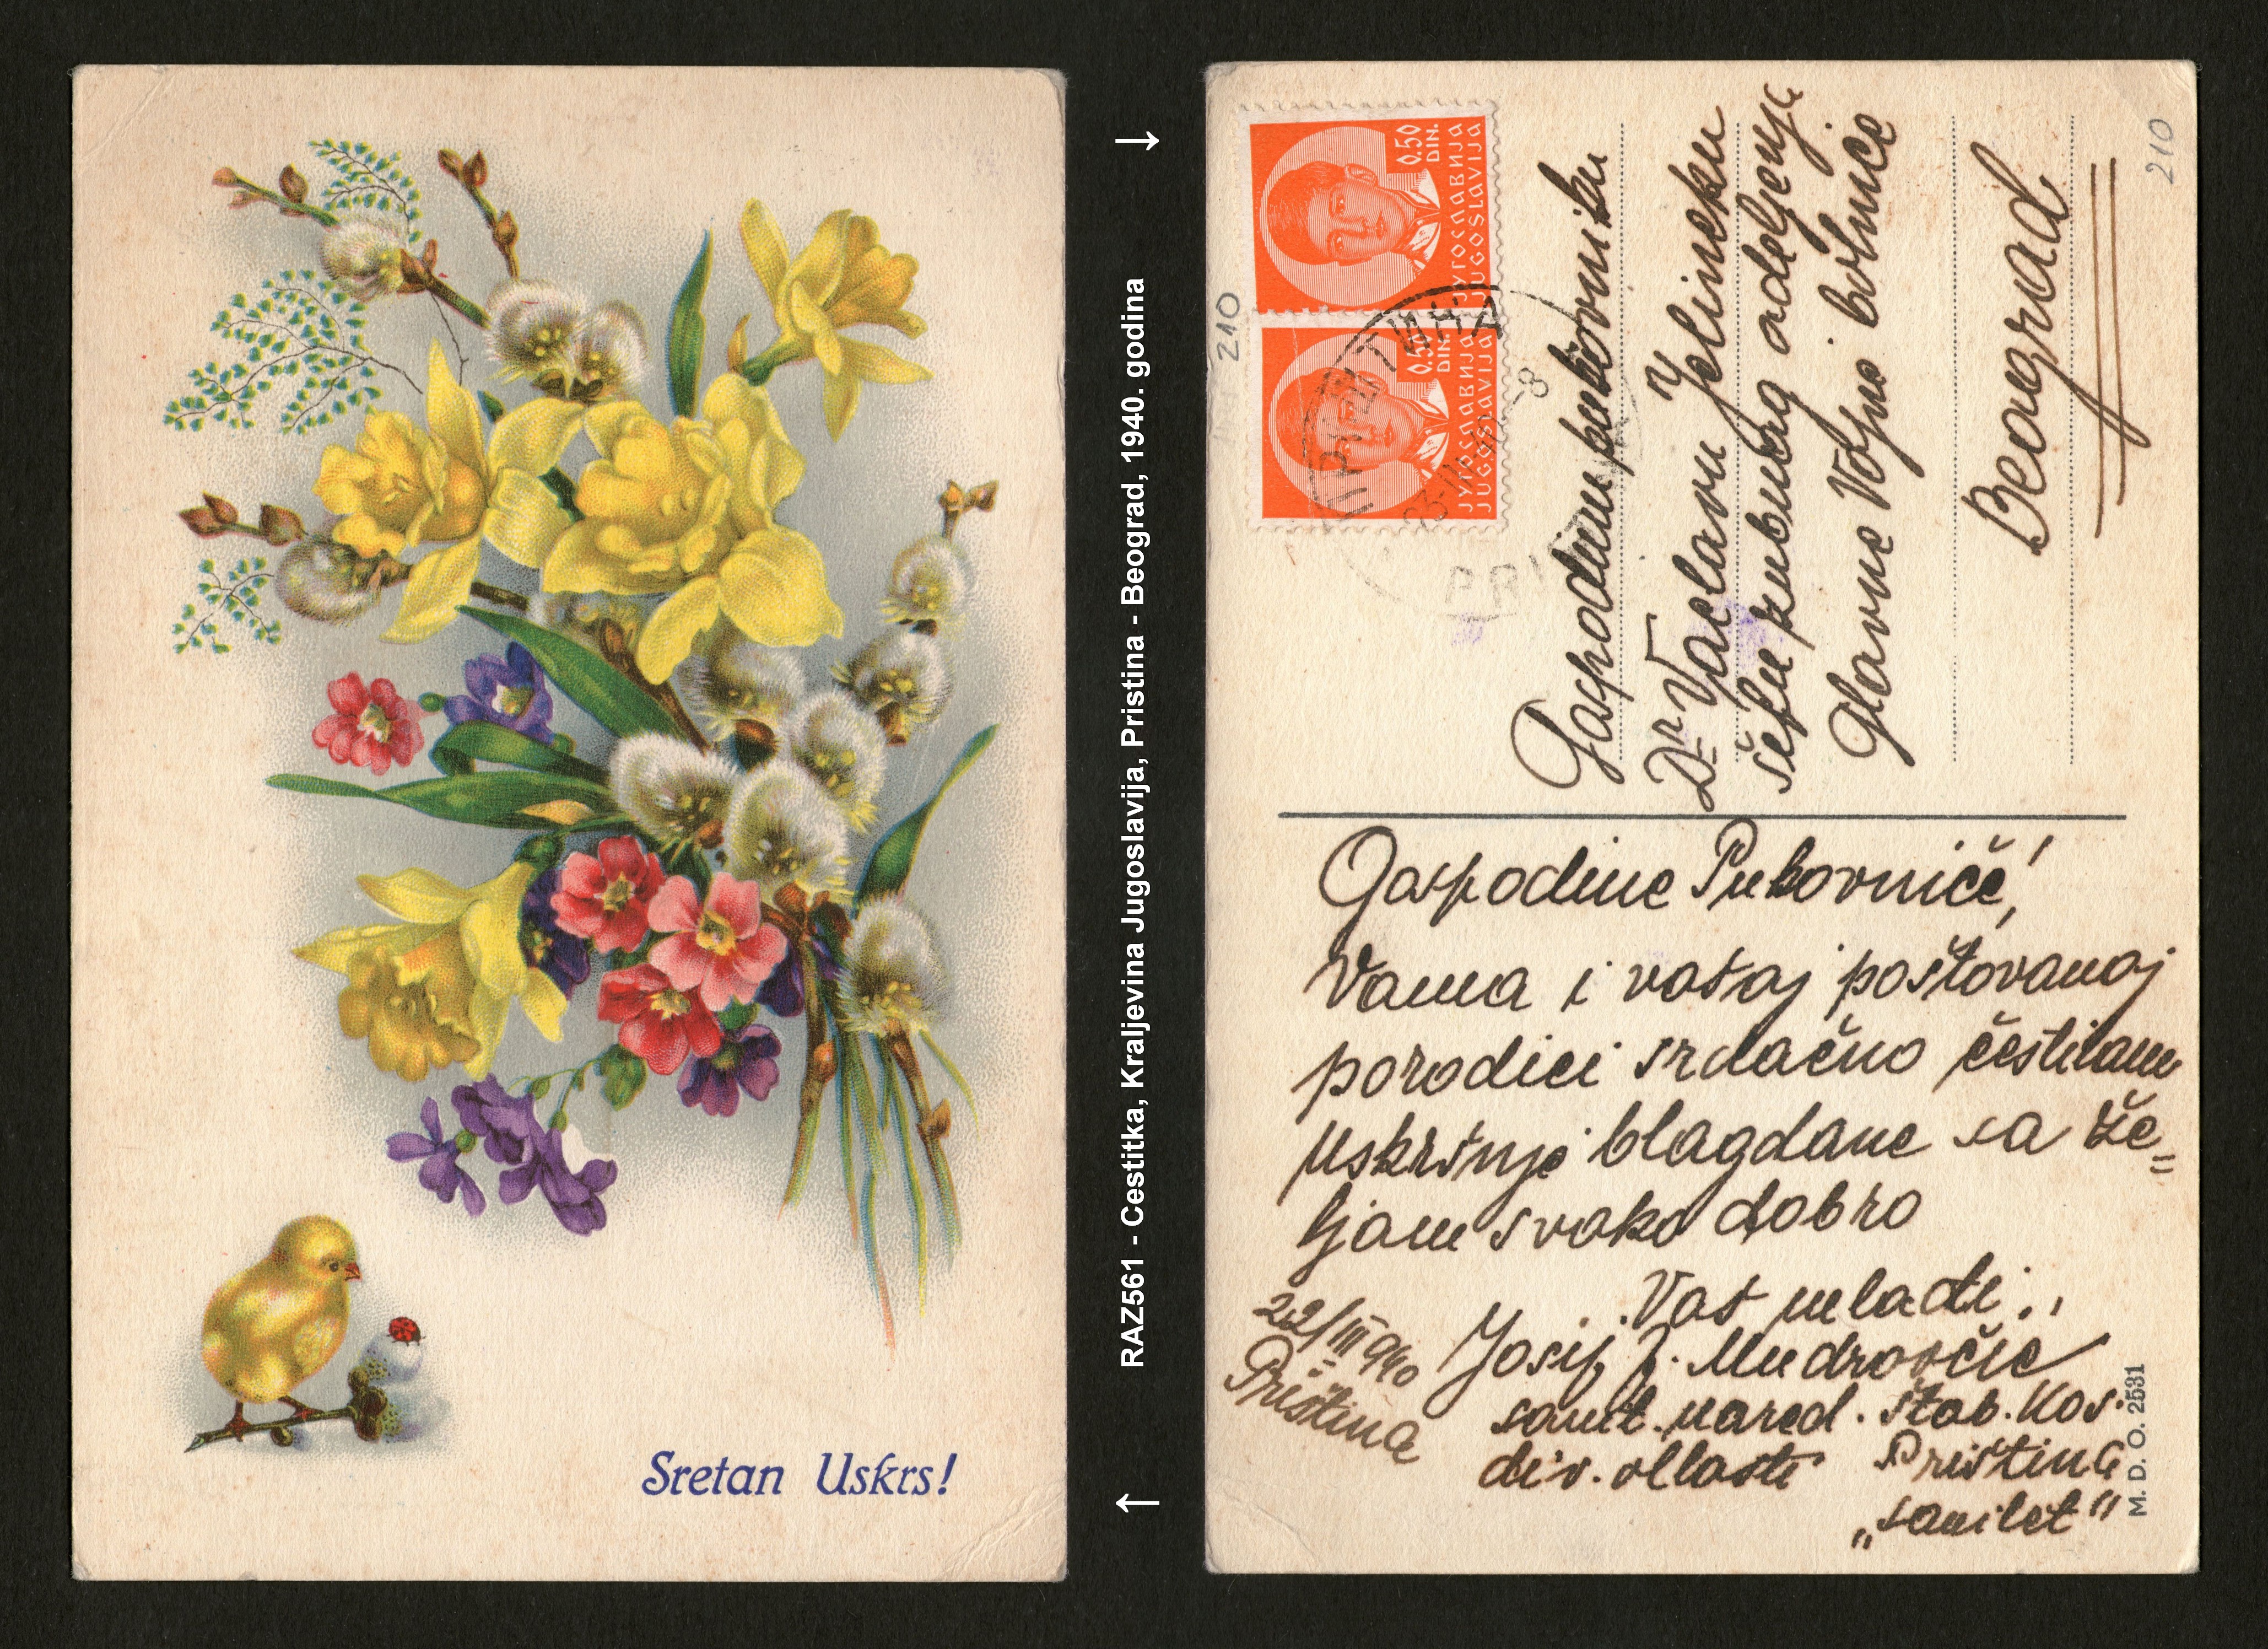 Sretan Uskrs!
↑ RAZ561 - Cestitka, Kraljevina Jugoslavija, Pristina - Beograd, 1940. godina ↓
210
0.50
DIN.
ЈУГОСЛАВИЈА
JUGOSLAVIJA
0.50
DIN.
ЈУГОСЛАВИЈА
JUGOSLAVIJA
ПРИШТИНА
210
Gospodinu pukovniku
Dr Vaclavu Jelineku
šefu zubnog odeljenja
Glavne Vojne bolnice
Beograd
Gospodine Pukovniče!
Vama i vašoj poštovanoj
porodici srdačno čestitam
Uskršnje blagdane sa že=
ljom svako dobro
Vaš mlađi,
Josif J. Mudrovčić
sanit. nared. štab. Kos.
div. oblasti Priština
„sanitet"
22/III 940
Priština
M. D. O. 2531